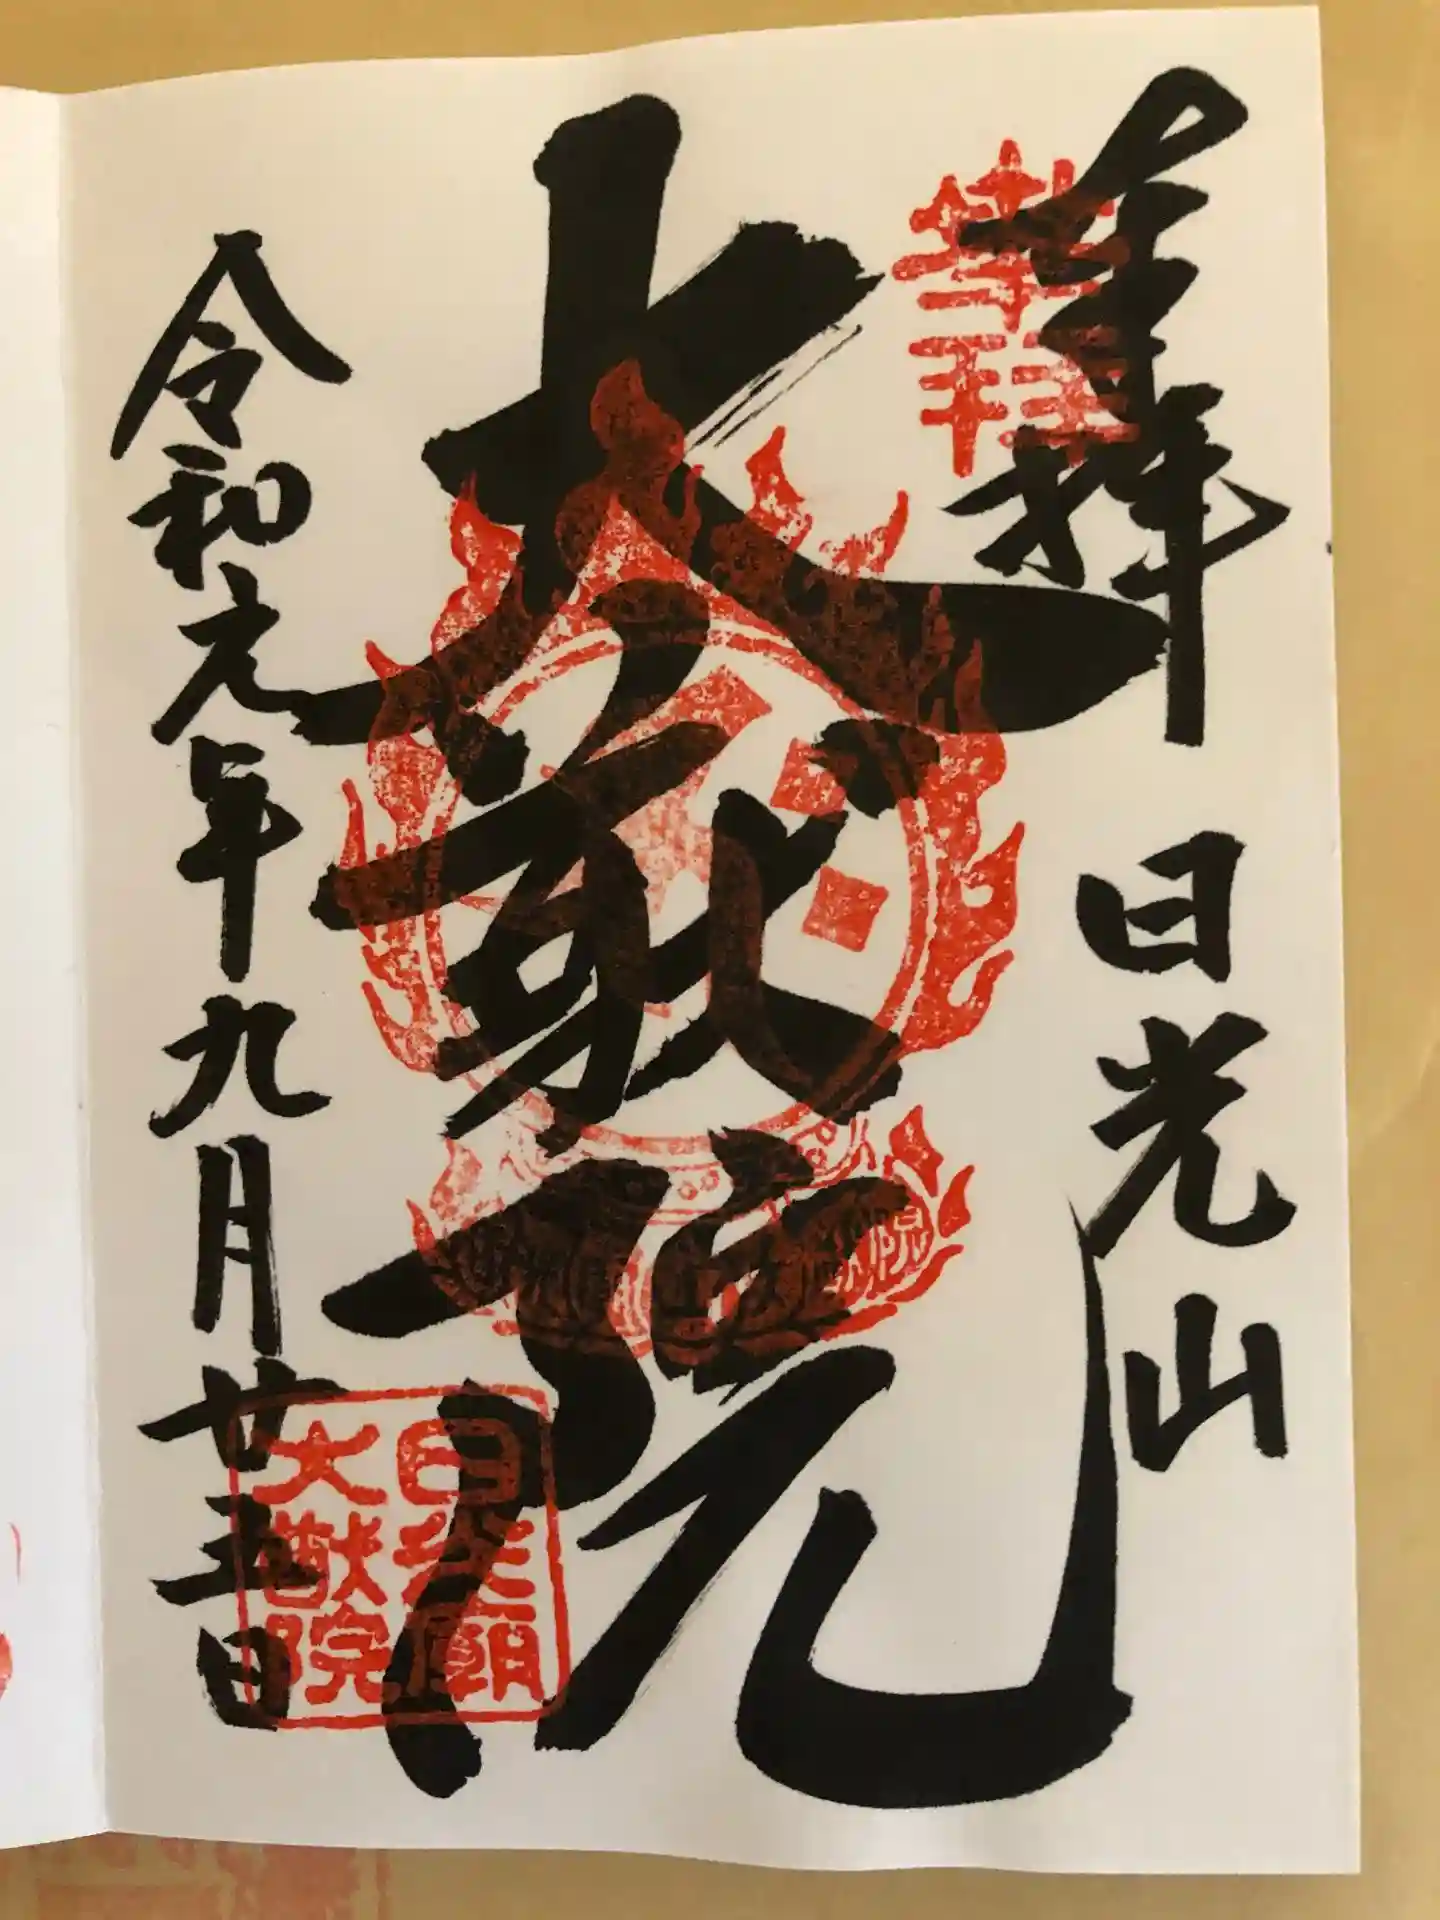 奉拝 日光山
大猷院
令和元年九月廿五日
日光廟
大猷院